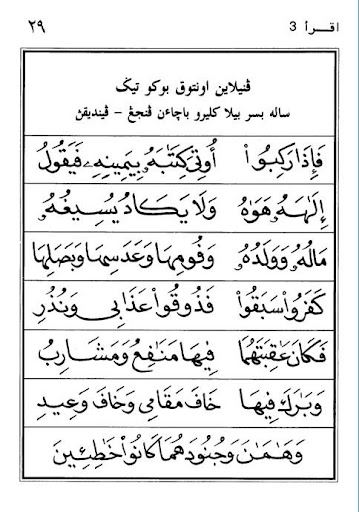 اقـرأ 3 ٢٩
ڤنيلاين اونتوق بوكو تيݢ
ساله بسر بيلا كليرو باچاءن ڤنجڠ – ڤينديقڽ
فَإِذَا رَكِبُوا۟ أُوتِىَ كِتَٰبَهُۥ بِيَمِينِهِۦ فَيَقُولُ
إِلَٰهَهُۥ هَوَىٰهُ وَلَا يَكَادُ يُسِيغُهُۥ
مَالُهُۥ وَوَلَدُهُۥ وَفُومِهَا وَعَدَسِهَا وَبَصَلِهَا
كَفَرُوا۟ سَبَقُوا۟ فَذُوقُوا۟ عَذَابِى وَنُذُرِ
فَكَانَ عَٰقِبَتَهُمَا فِيهَا مَنَٰفِعُ وَمَشَارِبُ
وَبَٰرَكَ فِيهَا خَافَ مَقَامِى وَخَافَ وَعِيدِ
وَهَٰمَٰنَ وَجُنُودَهُمَا كَانُوا۟ خَٰطِـِٔينَ